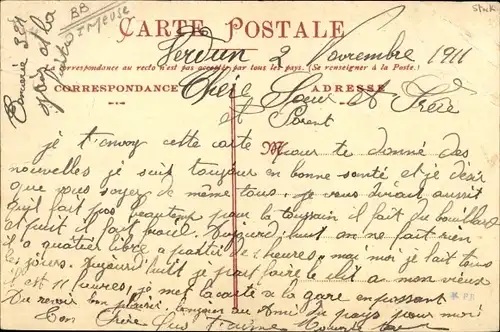 BB
Meuse
CARTE POSTALE
Verdun 2 Novembre 1911
Correspondance au recto n'est pas acceptée par tous les pays. (Se renseigner à la Poste.)
CORRESPONDANCE
ADRESSE
Chère Soeur et Frère
et Parent
M
je t'envoy cette carte pour te donné des
nouvelles je suit toujour en bonne santé et je désir
que vous soyer de même tous. je vous dirait aussit
qu'il fait pas beautemp pour la toussain il fait du bouillard
et puit il fait froid. Aujourd'huit on ne fait rien
il a quatier libre a partir de heures, mai moi je fait tous
les jours. Aujourd'huit je a mon vieux
il est 11 heures, je met la carte a la gare en passant
Au revoir bon plaisir. bonjour au Ami du pays pour moi
Ton Frère qui t'aime